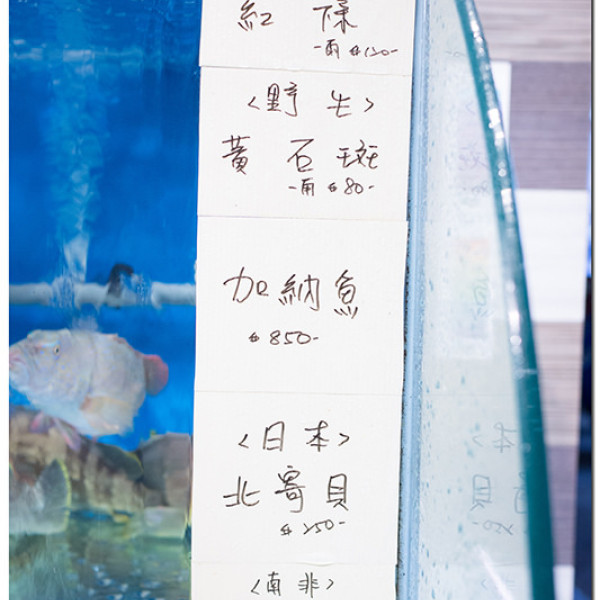 紅條
-兩$130-
<野生>
黃石斑
-兩$80-
加納魚
$850-
<日本>
北寄貝
$250-
<南非>